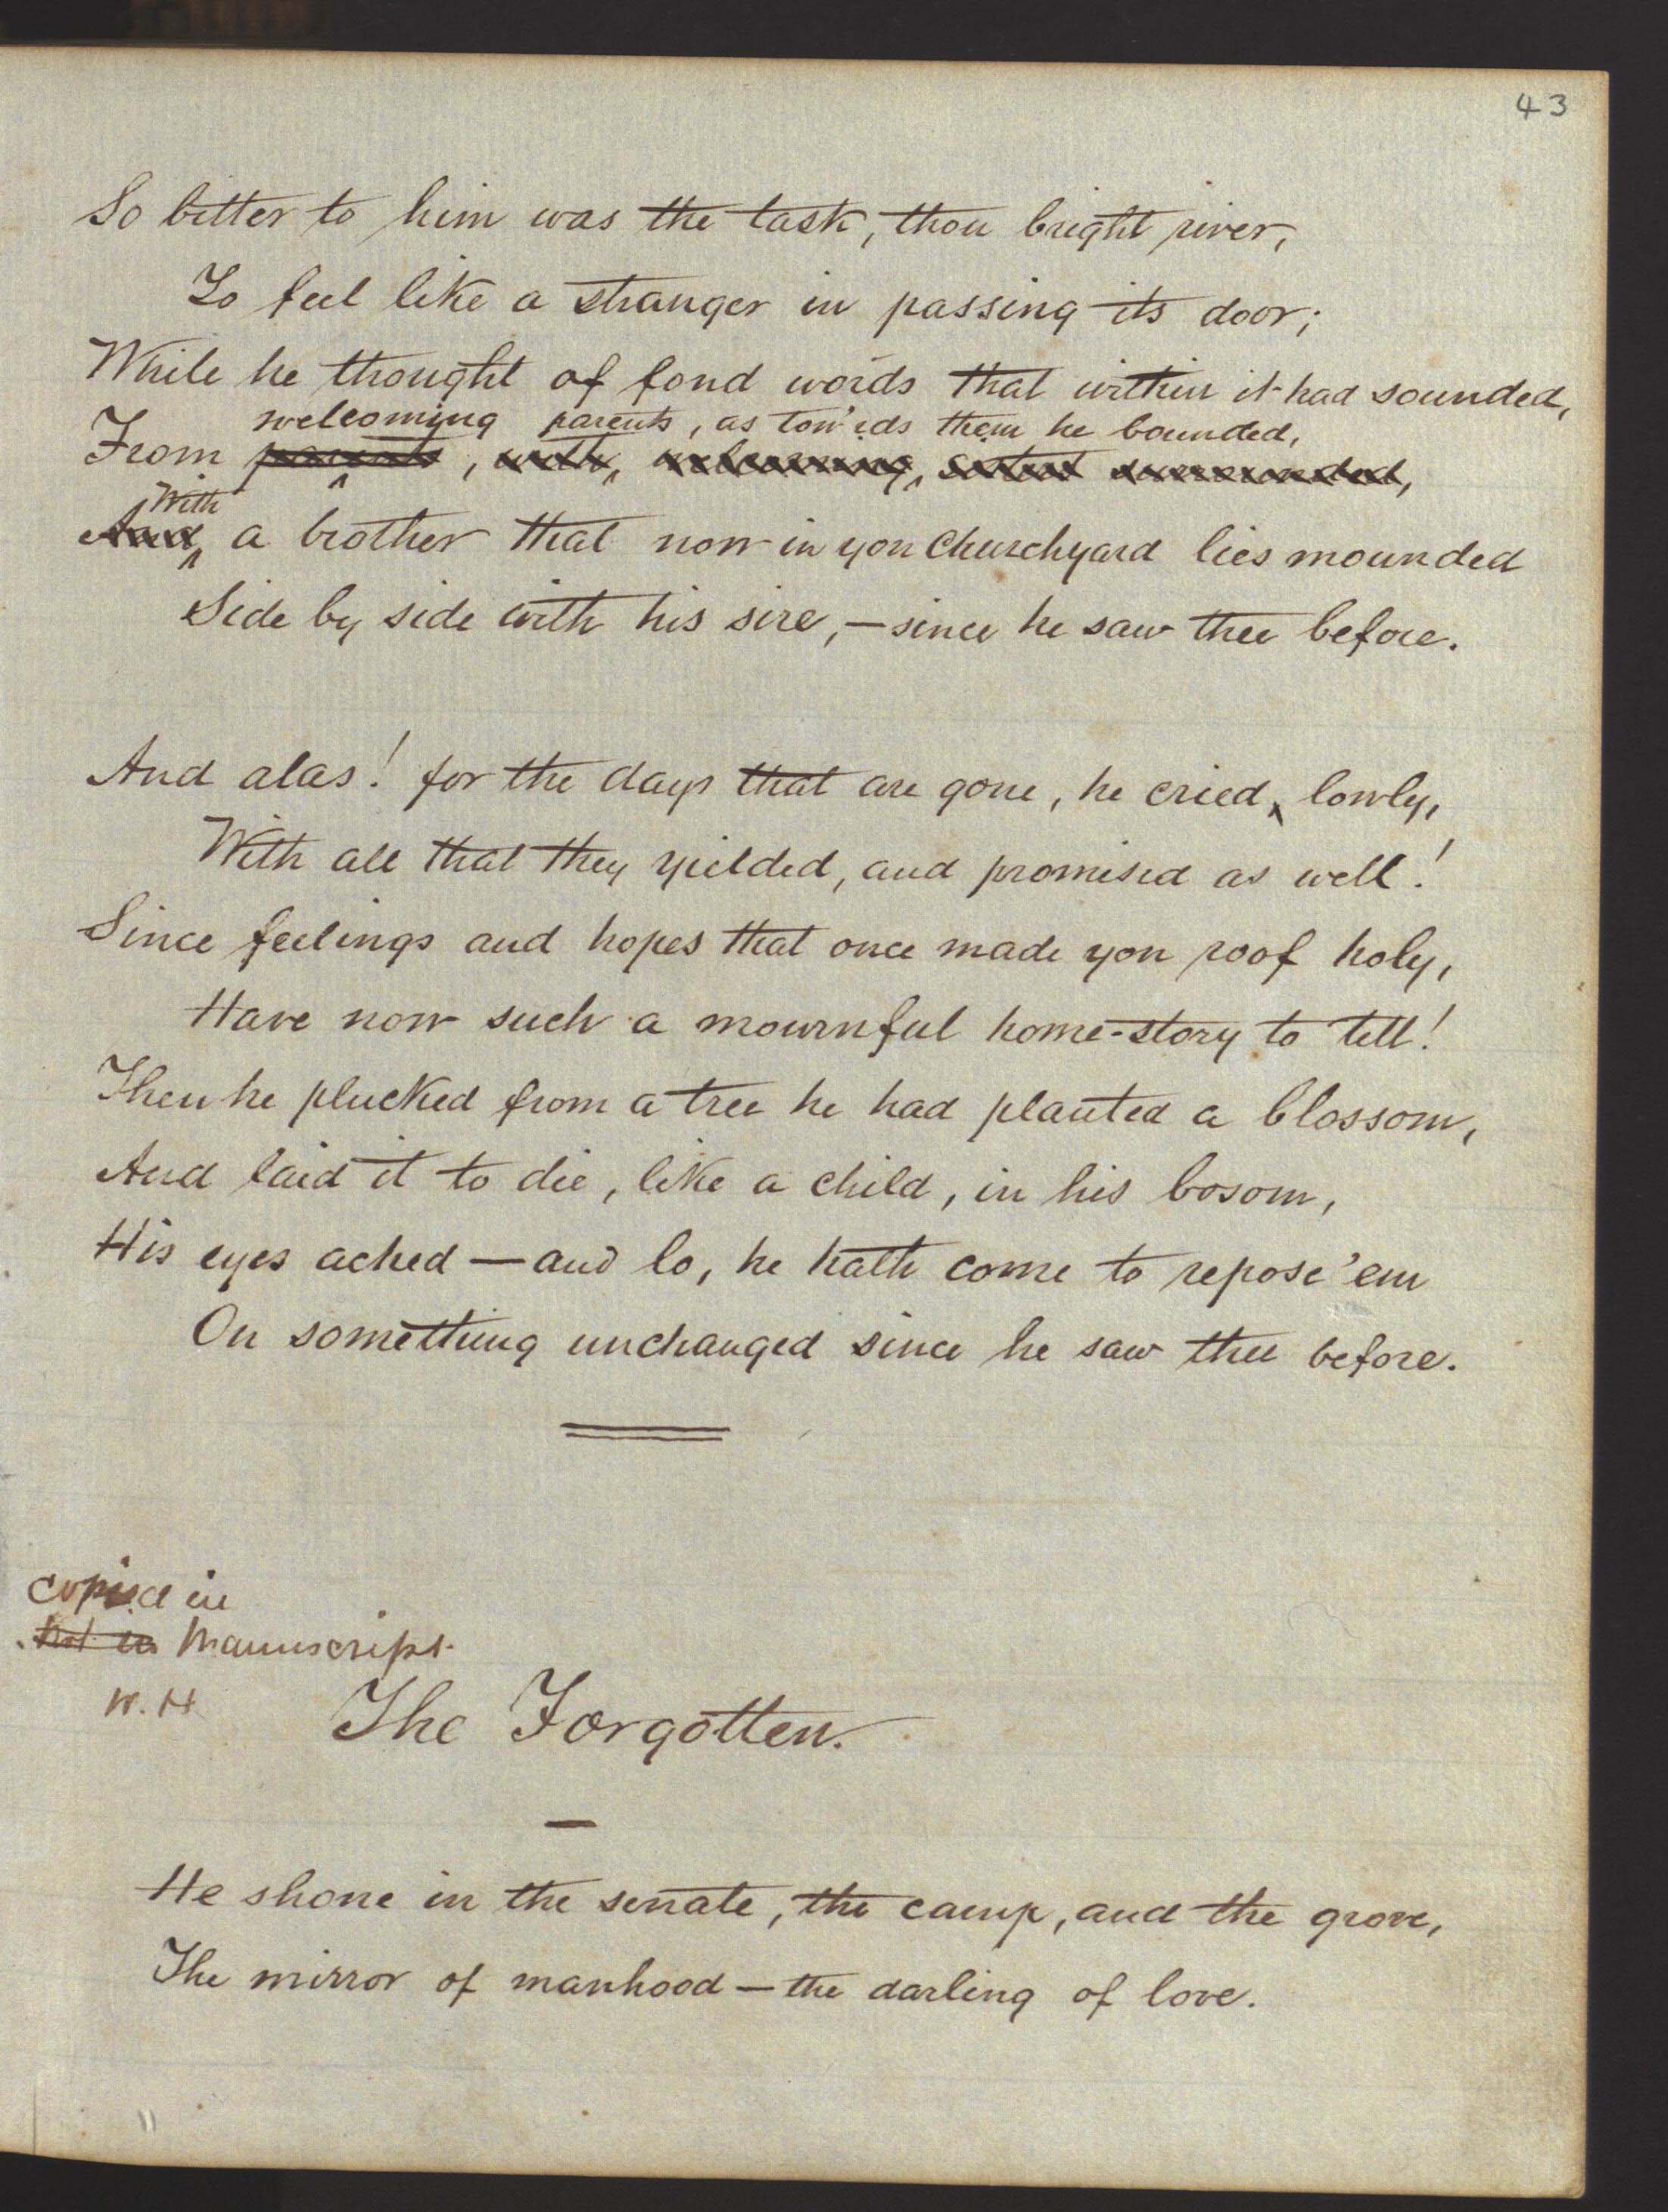 43
So bitter to him was the task, thou bright river,
To feel like a stranger in passing its door;
While he thought of fond words that within it had sounded,
welcoming parents, as tow'rds them he bounded,
From parents, with, welcoming,
With
And a brother that now in yon Churchyard lies mounded
Side by side with his sire, — since he saw thee before.
And alas! for the days that are gone, he cried, lowly,
With all that they yielded, and promised as well!
Since feelings and hopes that once made yon roof holy,
Have now such a mournful home-story to tell!
Then he plucked from a tree he had planted a blossom,
And laid it to die, like a child, in his bosom,
His eyes ached — and lo, he hath come to repose 'em
On something unchanged since he saw thee before.
copied in
not in Manuscript.
W. H
The Forgotten.
He shone in the senate, the camp, and the grove,
The mirror of manhood — the darling of love.